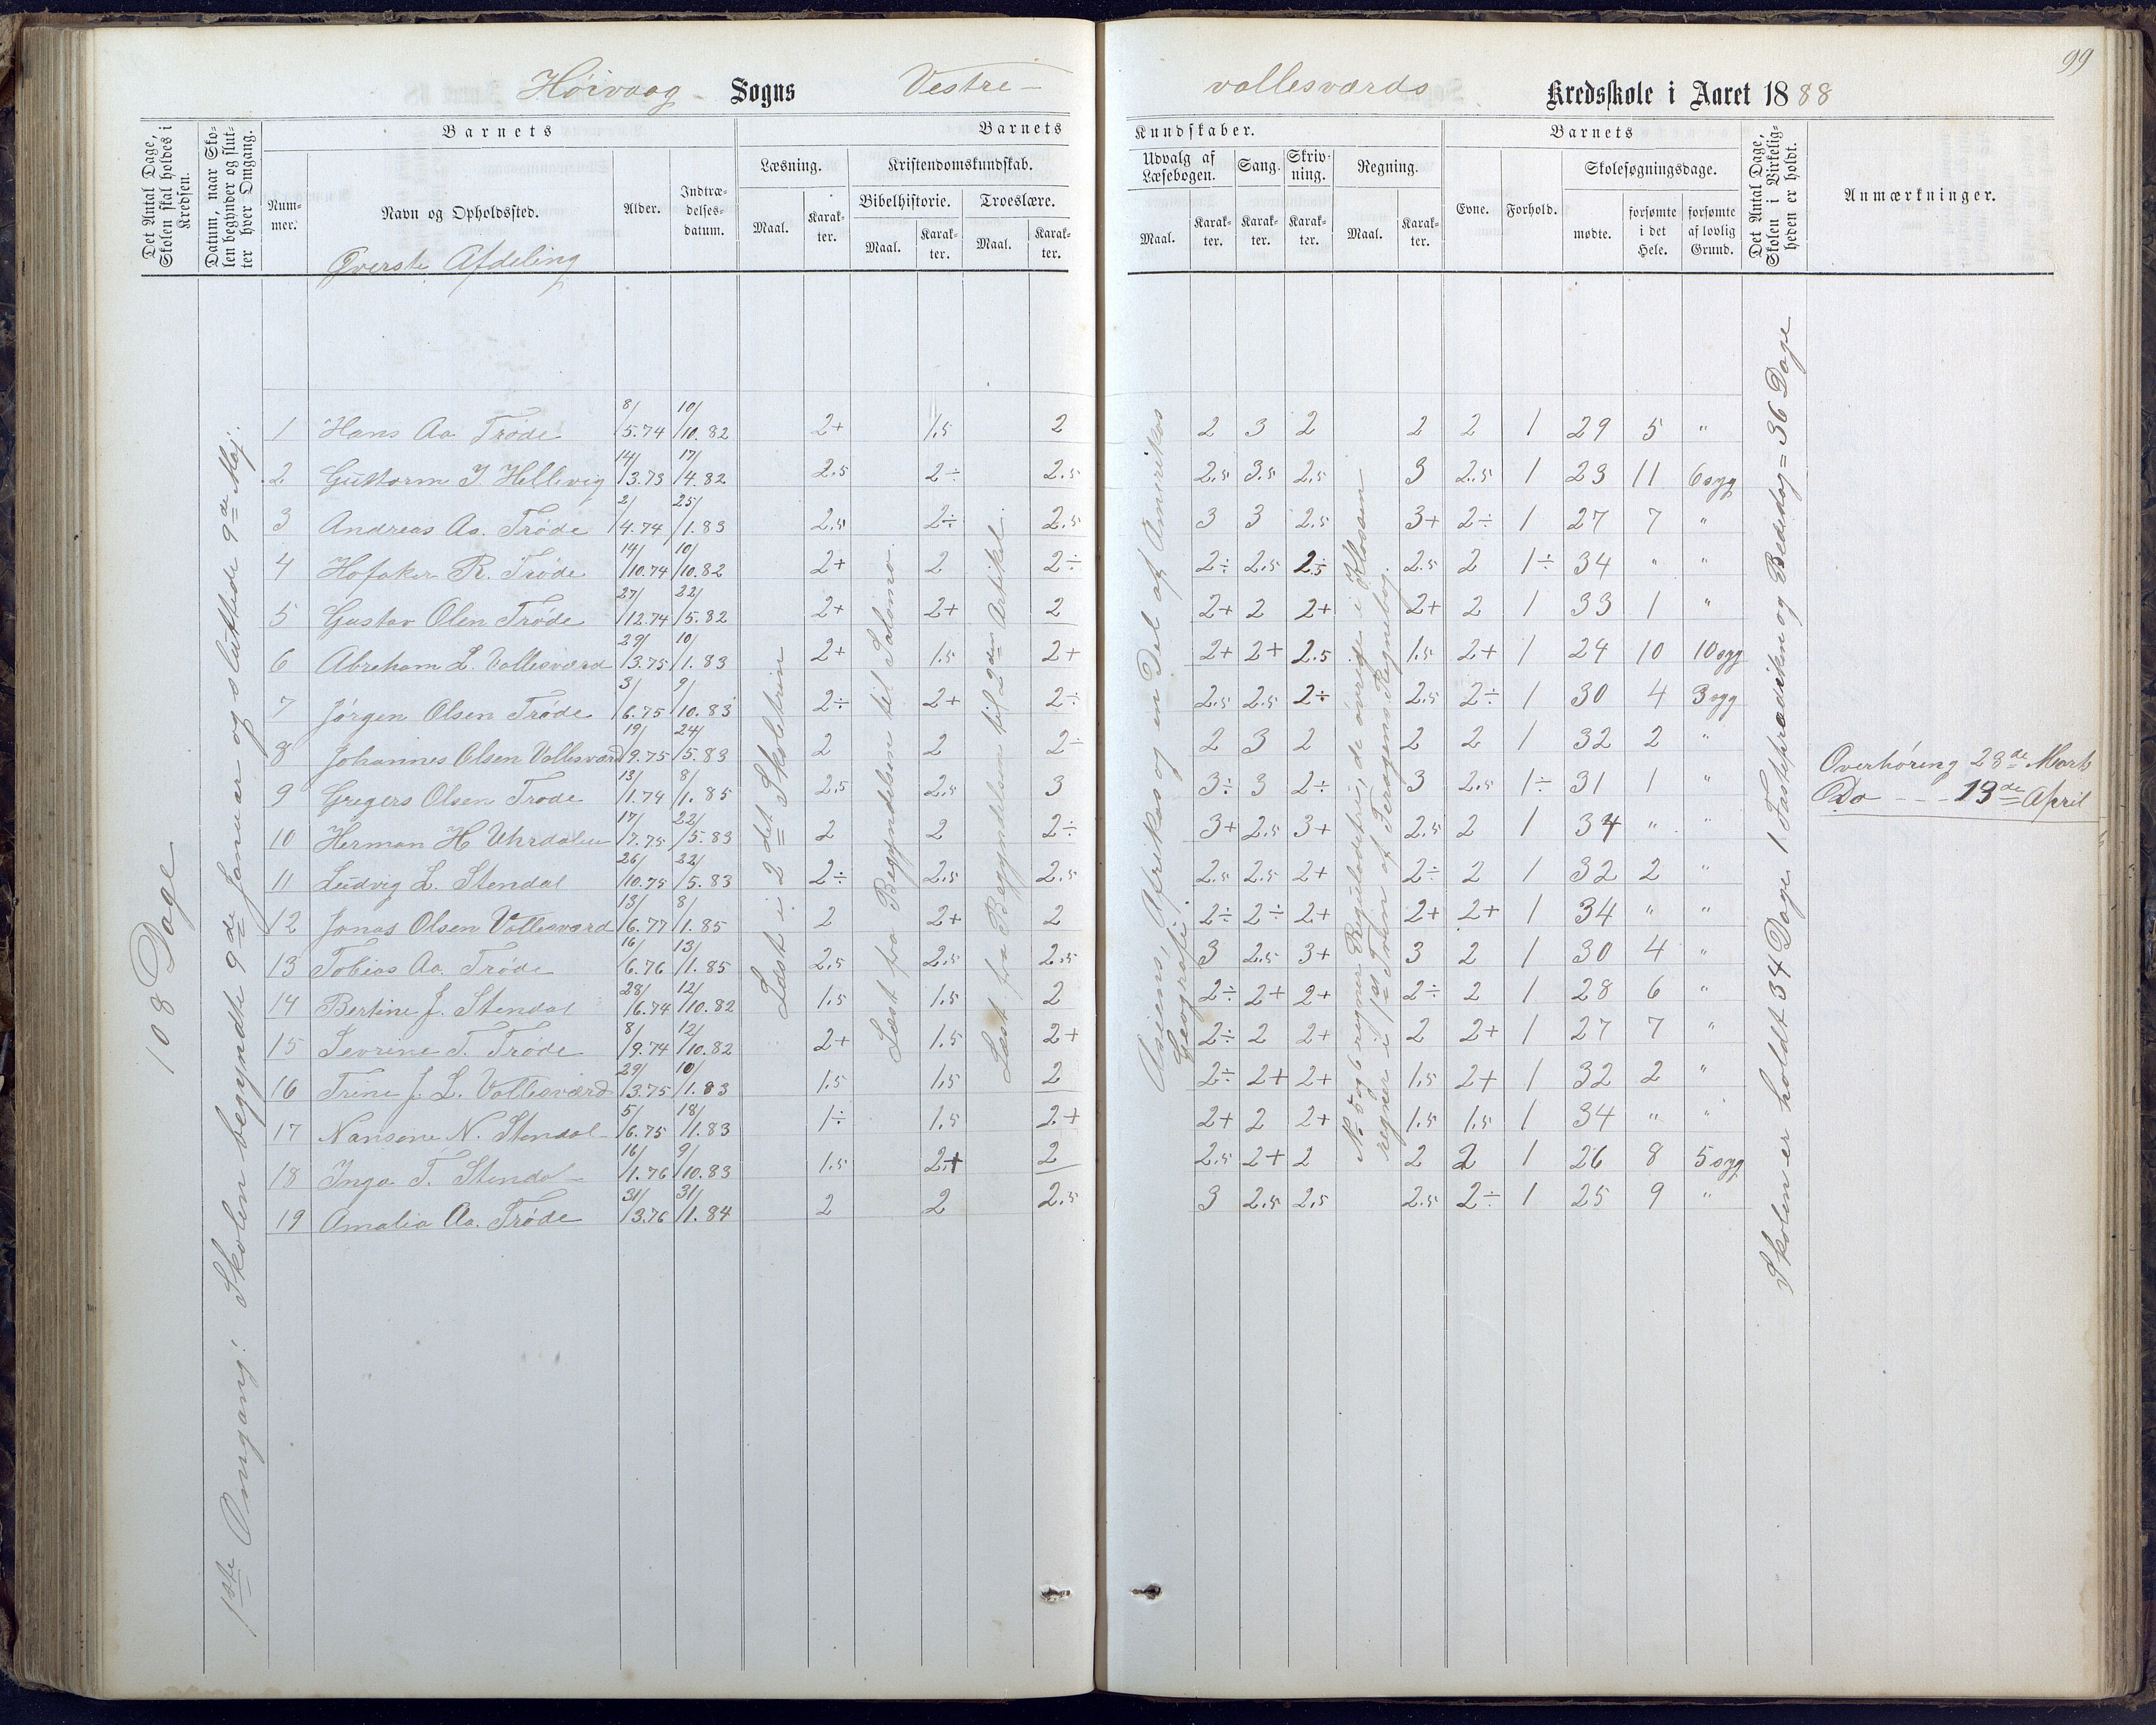 99
Höivaag Sogns Vestre – vallesværds Kredsskole i Aaret 1888
Det Antal Dage, Skolen skal holdes i Kredsen.
Datum, naar Skolen begynder og slutter hver Omgang.
Barnets
Nummer.
Navn og Opholdssted.
Alder.
Indtrædelsesdatum.
Barnets Kundskaber.
Læsning.
Maal. Karakter.
Kristendomskundskab.
Bibelhistorie. Troeslære.
Maal. Karakter. Maal. Karakter.
Udvalg af Læsebogen. Sang. Skrivning. Regning.
Maal. Karakter. Karakter. Karakter. Maal. Karakter.
Barnets
Evne. Forhold. Skolesøgningsdage.
mødte. forsømte i det Hele. forsømte af lovlig Grund.
Det Antal Dage, Skolen i Virkeligheden er holdt.
Anmærkninger.
Øverste Afdeling
108 Dage
1ste Omgang: Skolen begyndte 9de Januar og sluttede 9de Maj.
Læst i 2det Skoletrin
Læst fra Begyndelsen til Salomo.
Læst fra Begyndelsen til 2den Artikel.
Asiens, Afrikas og en Del af Amerikas Geografi.
No 5 og 6 regner Reguladetri, de øvrige i Klassen
regner i 1ste Trin af Feragens Regnebog.
Skolen er holdt 34 Dage. 1 Fastepræken og Bededag = 36 Dage
1 Hans Aa Trøde 8/5.74 10/10.82 2+ 1.5 2 2 3 2 2 2 1 29 5 "
2 Guttorm J. Hellevig 14/3.73 17/4.82 2.5 2÷ 2.5 2.5 3.5 2.5 3 2.5 1 23 11 6 syg
3 Andreas Aa. Trøde 2/4.74 25/1.83 2.5 2÷ 2.5 3 3 2.5 3+ 2÷ 1 27 7 "
4 Hofaker R. Trøde 14/10.74 10/10.82 2+ 2 2÷ 2÷ 2.5 2.5 2.5 2 1÷ 34 " "
5 Gustav Olen Trøde 27/12.74 22/5.82 2+ 2+ 2 2+ 2 2+ 2+ 2 1 33 1 "
6 Abreham L. Vallesværd 29/3.75 10/1.83 2+ 1.5 2+ 2+ 2+ 2.5 1.5 2+ 1 24 10 10 syg
7 Jörgen Olsen Trøde 3/6.75 9/10.83 2÷ 2+ 2÷ 2.5 2.5 2÷ 2.5 2÷ 1 30 4 3 syg
8 Johannes Olsen Vallesværd 19/9.75 24/5.83 2 2 2÷ 2 3 2 2 2 1 32 2 "
9 Gregers Olsen Trøde 13/1.74 8/1.85 2.5 2.5 3 3÷ 3 2÷ 3 2.5 1÷ 31 1 "
10 Herman H Uhrdalen 17/7.75 22/5.83 2 2 2÷ 3+ 2.5 3+ 2.5 2 1 34 " "
11 Ludvig L. Stendal 26/10.75 22/5.83 2÷ 2.5 2.5 2.5 2.5 2+ 2÷ 2 1 32 2 "
12 Jonas Olsen Vallesværd 13/6.77 8/1.85 2 2+ 2 2÷ 2÷ 2+ 2+ 2+ 1 34 " "
13 Tobias Aa. Trøde 16/6.76 13/1.85 2.5 2.5 2.5 3 2.5 3+ 3 2 1 30 4 "
14 Bertine J. Stendal 28/6.74 12/10.82 1.5 1.5 2 2÷ 2+ 2+ 2÷ 2 1 28 6 "
15 Sevrine T. Trøde 8/9.74 12/10.82 2+ 1.5 2+ 2÷ 2 2+ 2 2+ 1 27 7 "
16 Trine J. L. Vallesværd 29/3.75 10/1.83 1.5 1.5 2 2÷ 2+ 2+ 1.5 2+ 1 32 2 "
17 Nansene N. Stendal 5/6.75 18/1.83 1÷ 1.5 2+ 2+ 2 2+ 1.5 1.5 1 34 " "
18 Inga T. Stendal 16/1.76 9/10.83 1.5 2+ 2 2.5 2+ 2 2 2 1 26 8 5 syg
19 Amalia Aa. Trøde 31/3.76 31/1.84 2 2 2.5 3 2.5 2.5 2.5 2÷ 1 25 9 "
Overhøring 23de Marts
Do --- 13de April